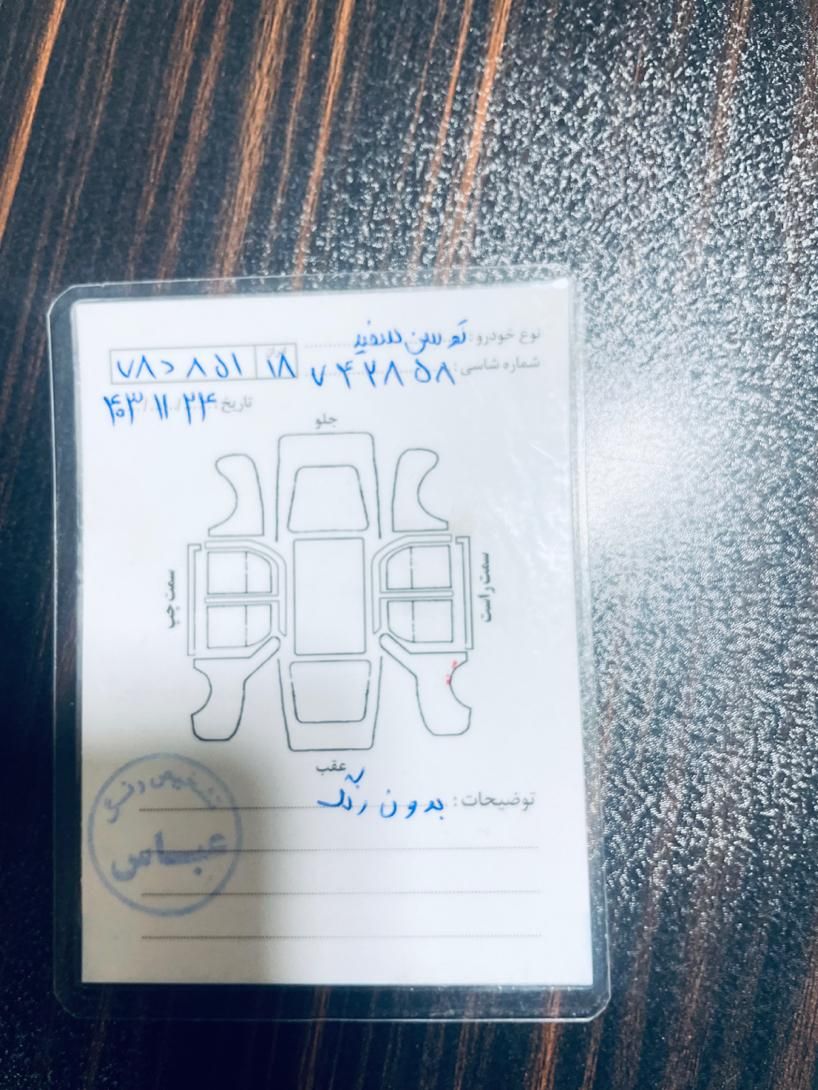 نوع خودرو: توسن سفید
شماره شاسی: ۷۴۲۸۵۸
۱۸ ۷۸ د ۸۵۱
تاریخ: ۴۰۳/۱۱/۲۴
جلو
سمت چپ
سمت راست
عقب
توضیحات: بدون رنگ
تشخیص رنگ
عباس